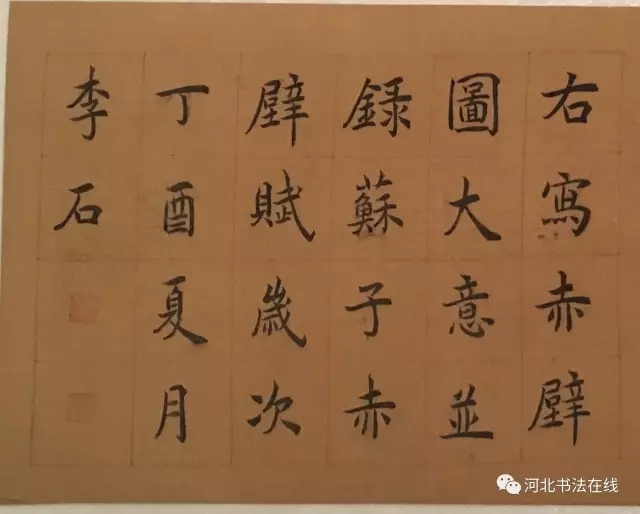 右寫赤壁
圖大意並
録蘇子赤
壁賦歲次
丁酉夏月
李石
河北书法在线